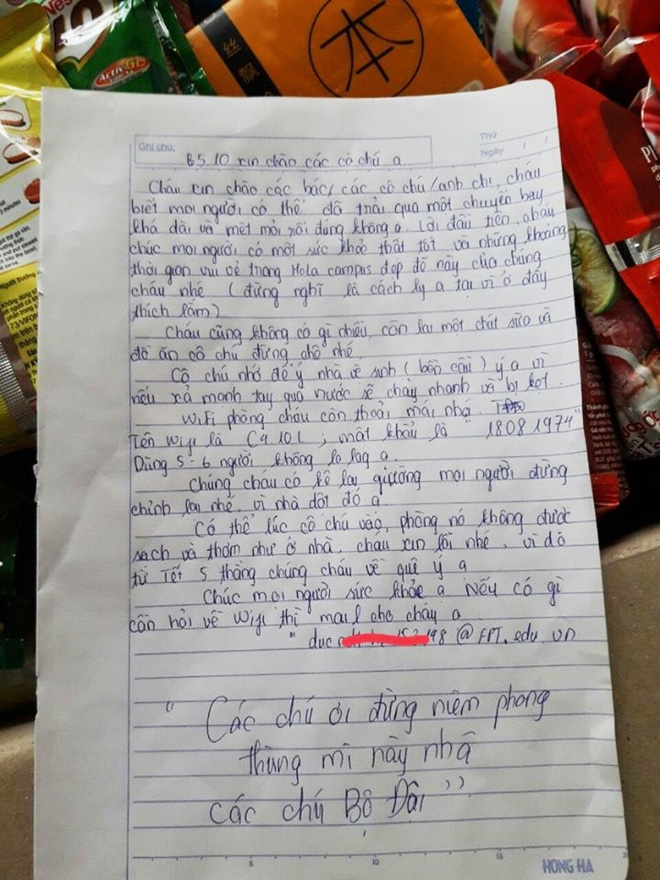 Nes
本
飘
Ghi chú:
Thứ
Ngày / /
B5.10 xin chào các cô chú ạ
Cháu xin chào các bác, các cô chú/anh chị, cháu
biết mọi người có thể đã trải qua một chuyến bay
khá dài và mệt mỏi rồi đúng không ạ. Lời đầu tiên, cháu
chúc mọi người có một sức khỏe thật tốt và những khoảng
thời gian vui vẻ trong Hola campus đẹp đẽ này của chúng
cháu nhé (đừng nghĩ là cách ly ạ tại vì ở đây
thích lắm)
Cháu cũng không có gì nhiều, còn lại một chút sữa và
đồ ăn cô chú đừng chê nhé.
Cô chú nhớ để ý nhà vệ sinh (bồn cầu) ý ạ vì
nếu xả mạnh tay quá nước sẽ chảy nhanh và bị kẹt.
Wifi phòng cháu còn thoải mái nhá.
Tên wifi là C410L, mật khẩu là 18081974"
Dùng 5-6 người không lo lag ạ.
Chúng cháu có kê lại giường mọi người đừng
chỉnh lại nhé, vì nhà dột đó ạ.
Có thể lúc cô chú vào, phòng nó không được
sạch và thơm như ở nhà, cháu xin lỗi nhé, vì đã
từ Tết 5 tháng chúng cháu về quê ý ạ
Chúc mọi người sức khỏe ạ Nếu có gì
cần hỏi về wifi thì mail cho cháu ạ
"duc 198@FPT.edu.vn
"Các chú ơi đừng niêm phong
thùng mì này nhá
các chú Bộ Đội"
HONG HA